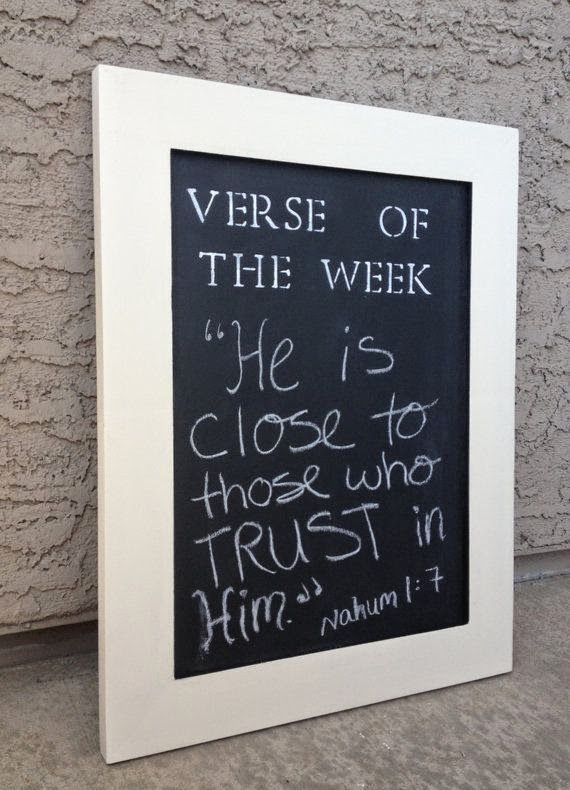 VERSE OF
THE WEEK
"He is
close to
those who
TRUST in
Him."
Nahum 1:7